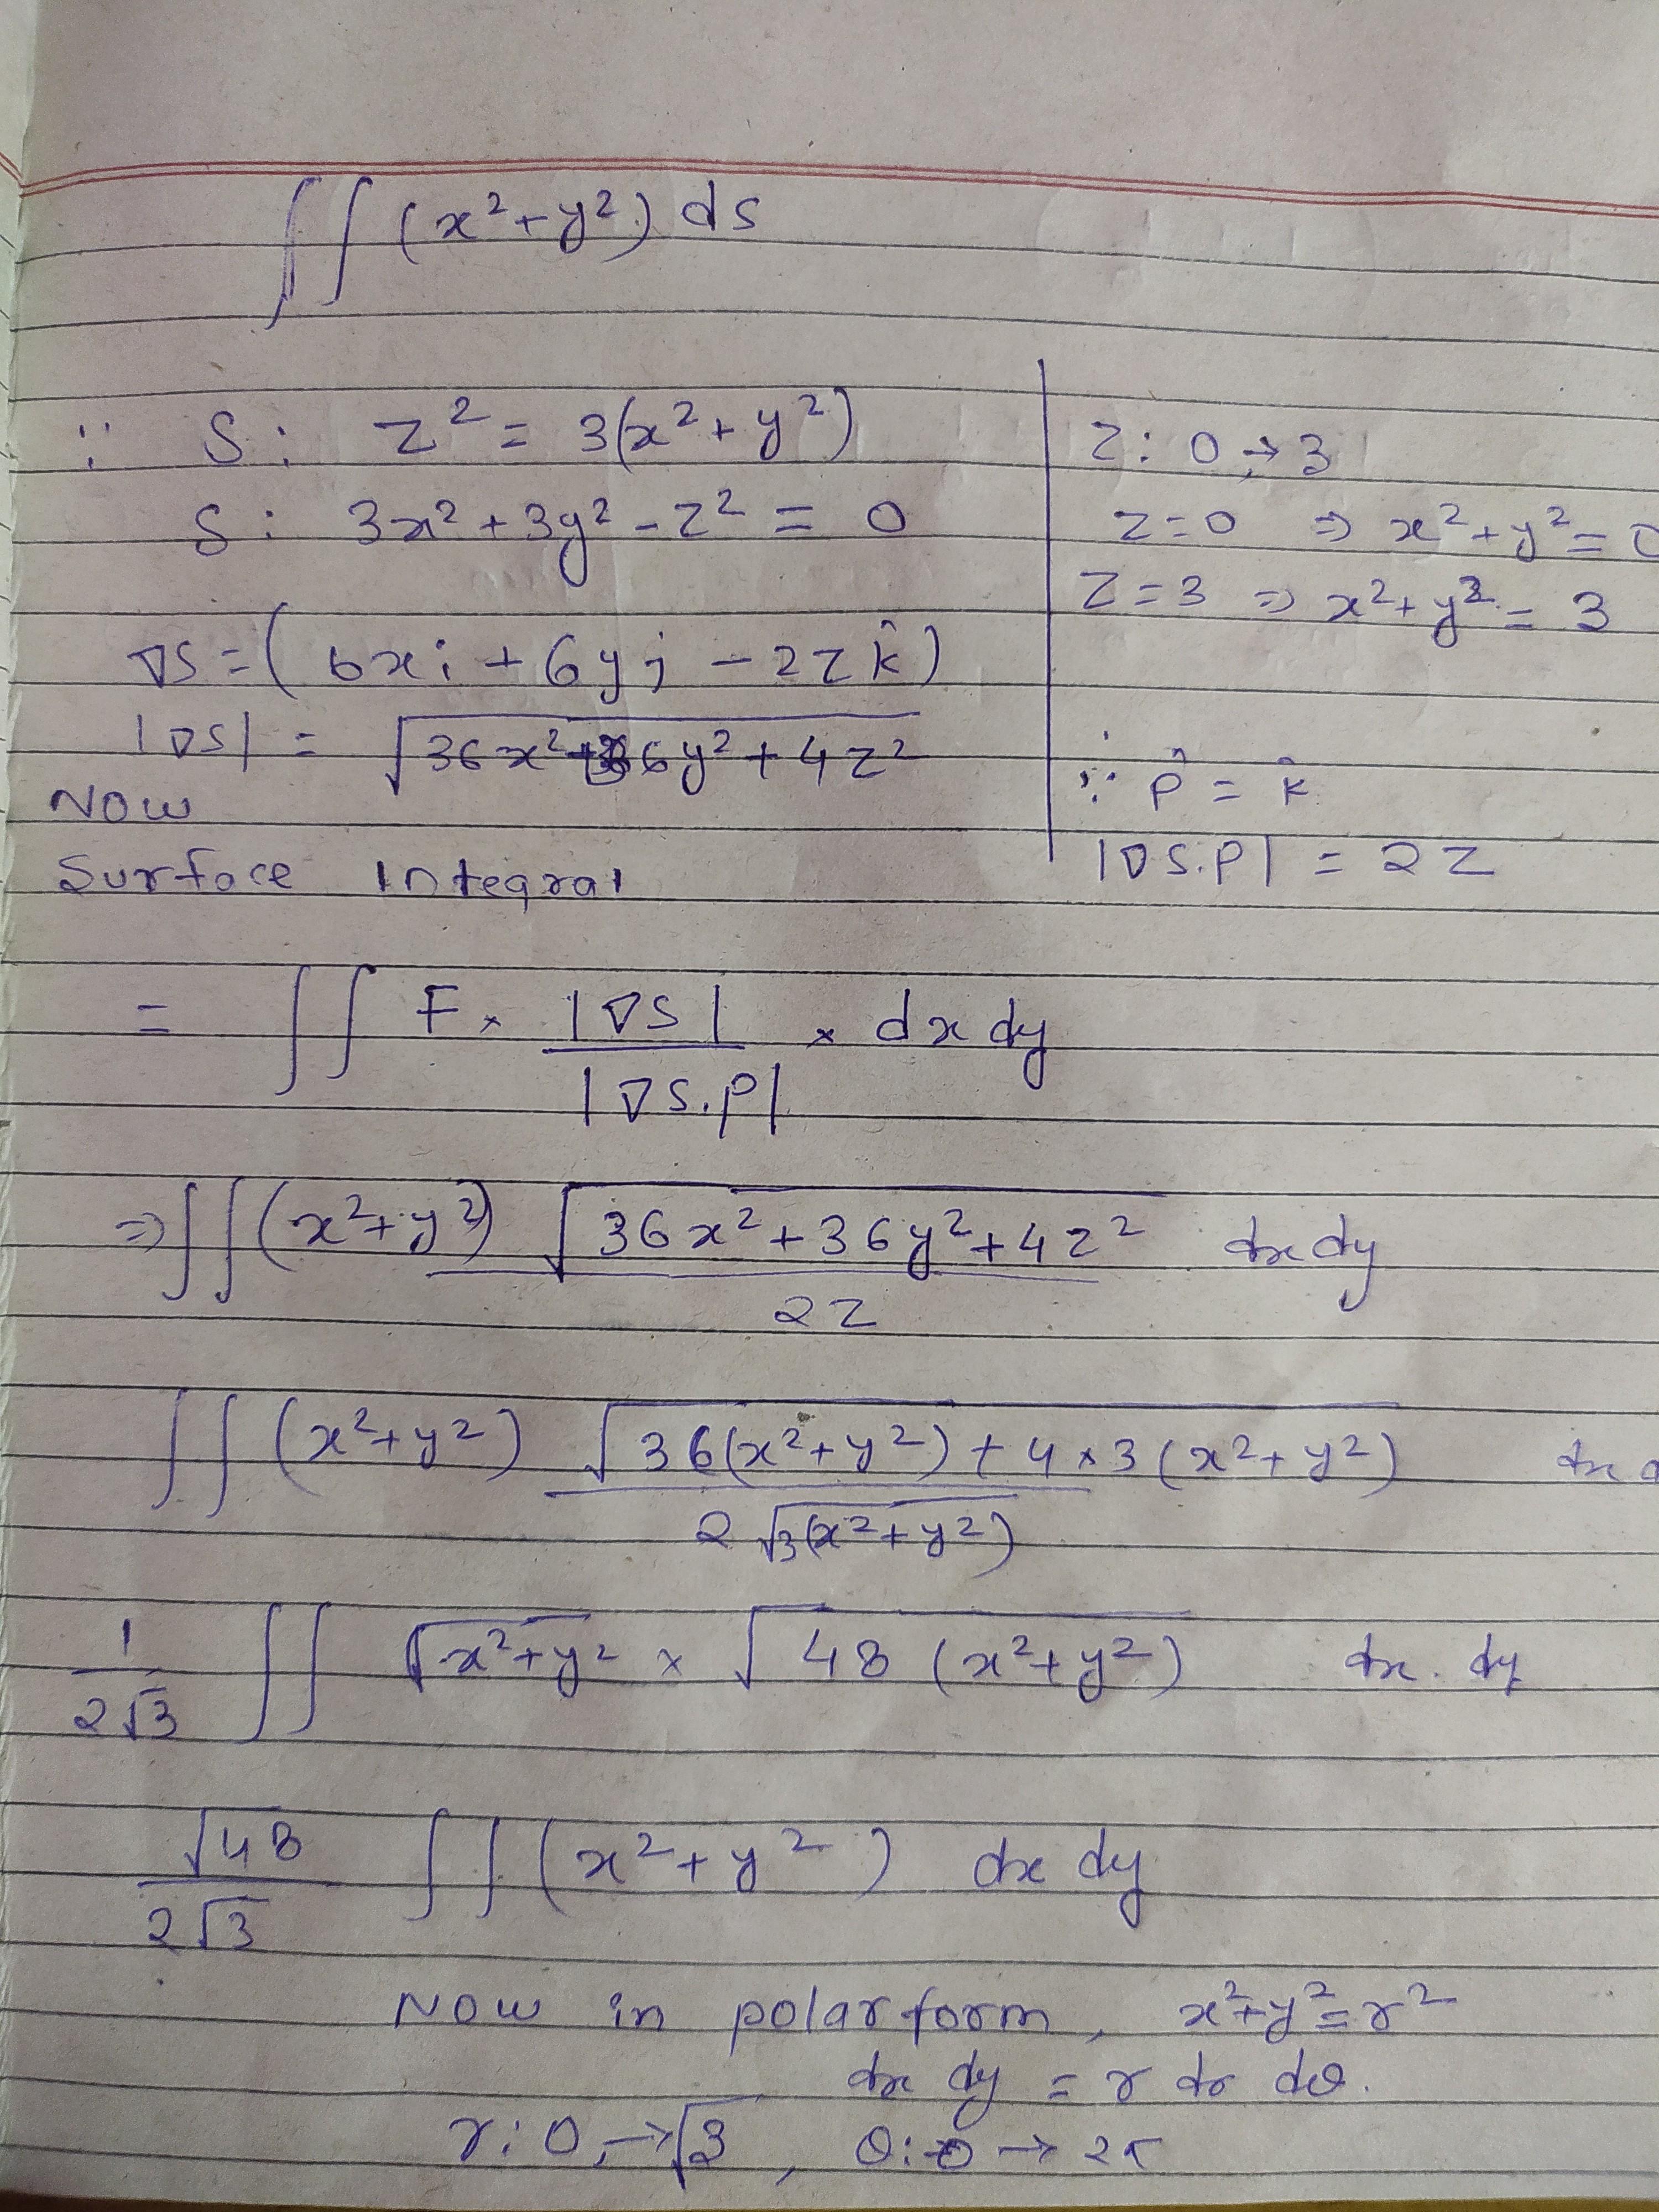 ∫∫ (x²+y²) ds
∵ S: z² = 3(x²+y²)
S: 3x²+3y²-z² = 0
∇S = (6xi + 6yj - 2zk̂)
|∇S| = √36x²+36y²+4z²
Now
Surface Integral
z: 0 → 3
z=0 ⇒ x²+y²=0
z=3 ⇒ x²+y² = 3
∵ p̂ = k̂
|∇S.P| = 2z
= ∫∫ F × |∇S| / |∇S.P| × dx dy
⇒ ∫∫ (x²+y²) √36x²+36y²+4z² / 2z dx dy
∫∫ (x²+y²) √36(x²+y²)+4×3(x²+y²) / 2√3(x²+y²) dx
1/2√3 ∫∫ √x²+y² × √48(x²+y²) dx. dy
√48/2√3 ∫∫ (x²+y²) dx dy
Now in polar form, x²+y²=r²
dx dy = r dr dθ.
r: 0 → √3, θ: 0 → 2π